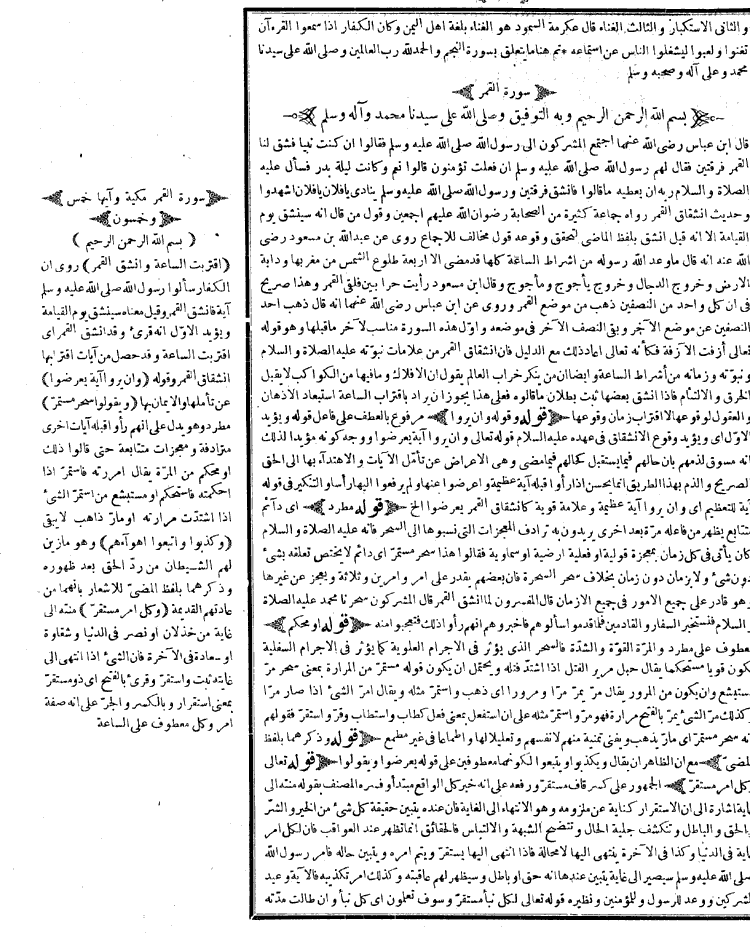 والثاني الاستكبار والثالث الغناء قال عكرمة السمود هو الغناء بلغة اهل اليمن وكان الكفار اذا سمعوا القرءآن
تغنوا ولعبوا ليشغلوا الناس عن استماعه * تم هنا ما يتعلق بسورة النجم والحمد لله رب العالمين وصلى الله على سيدنا
محمد وعلى آله وصحبه وسلم
سورة القمر
بسم الله الرحمن الرحيم وبه التوفيق وصلى الله على سيدنا محمد وآله وسلم
قال ابن عباس رضى الله عنهما اجتمع المشركون الى رسول الله صلى الله عليه وسلم فقالوا ان كنت نبيا فشق لنا
القمر فرقتين فقال لهم رسول الله صلى الله عليه وسلم ان فعلت تؤمنون قالوا نعم وكانت ليلة بدر فسأل عليه
الصلاة والسلام ربه ان يعطيه ما قالوا فانشق فرقتين ورسول الله صلى الله عليه وسلم ينادى يا فلان يا فلان اشهدوا
وحديث انشقاق القمر رواه جماعة كثيرة من الصحابة رضوان الله عليهم اجمعين وقول من قال انه سينشق يوم
القيامة الا انه قيل انشق بلفظ الماضى لتحقق وقوعه قول مخالف للاجماع روى عن عبدالله بن مسعود رضى
الله عنه انه قال ما وعد الله رسوله من اشراط الساعة كلها قد مضى الا اربعة طلوع الشمس من مغربها ودابة
الارض وخروج الدجال وخروج يأجوج ومأجوج وقال ابن مسعود رأيت حرا بين فلقى القمر وهذا صريح
فى ان كل واحد من النصفين ذهب من موضع القمر وروى عن ابن عباس رضى الله عنهما انه قال ذهب احد
النصفين عن موضع الآخر وبقى النصف الآخر فى موضعه واول هذه السورة مناسب لآخر ما قبلها وهو قوله
تعالى أزفت الآزفة فكأنه تعالى اعاد ذلك مع الدليل فان انشقاق القمر من علامات نبوته عليه الصلاة والسلام
ونبوته وزمانه من أشراط الساعة وايضا ان من ينكر خراب العالم يقول ان الافلاك وما فيها من الكواكب لا يقبل
الخرق والالتئام فاذا انشق بعضها ثبت بطلان ما قالوه فعلى هذا يجوز ان يراد باقتراب الساعة استبعاد الاذهان
والعقول لوقوعها لا اقتراب زمان وقوعها قوله وقوله وان يروا مرفوع بالعطف على فاعل قوله ويؤيد
الاول اى ويؤيد وقوع الانشقاق فى عهده عليه السلام قوله تعالى وان يروا آية يعرضوا ووجه كونه مؤيدا لذلك
انه مسوق لذمهم بان حالهم فيما يستقبل كحالهم فيما مضى وهى الاعراض عن تأمل الآيات والاهتداء بها الى الحق
الصريح والذم بهذا الطريق انما يحسن اذا رأوا قبله آية عظيمة واعرضوا عنها ولم يرفعوا اليها رأسا والتنكير فى قوله
آية للتعظيم اى وان يروا آية عظيمة وعلامة قوية كانشقاق القمر يعرضوا الخ قوله مطرد اى دائم
متتابع يظهر من فاعله مرة بعد اخرى يريدون به ترادف المعجزات التى نسبوها الى السحر فانه عليه الصلاة والسلام
كان يأتى فى كل زمان بمعجزة قولية او فعلية ارضية او سماوية فقالوا هذا سحر مستمر اى دائم لا يختص تعلقه بشئ
دون شئ ولا بزمان دون زمان بخلاف سحر السحرة فان بعضهم يقدر على امر وامرين وثلاثة ويعجز عن غيرها
وهو قادر على جميع الامور فى جميع الازمان قال المفسرون لما انشق القمر قال المشركون سحرنا محمد عليه الصلاة
والسلام فنستخبر السفار والقادمين فلما قدموا سألوهم فاخبروهم انهم رأوا ذلك فتعجبوا منه قوله او محكم
معطوف على مطرد والمرة القوة والشدة فالسحر الذى يؤثر فى الاجرام العلوية كما يؤثر فى الاجرام السفلية
يكون قويا مستحكما يقال حبل مرير الفتل اذا اشتد فتله ويحتمل ان يكون قوله مستمر من المرارة بمعنى سحر مر
مستبشع وان يكون من المرور يقال مر يمر مرا ومرورا اى ذهب واستمر مثله ويقال امر الشئ اذا صار مرا
وكذلك مر الشئ يمر بالفتح مرارة فهو مر واستمر مثله على ان استفعل بمعنى فعل كطاب واستطاب وقر واستقر فقولهم
انه سحر مستمر اى مار يذهب ويفنى تمنية منهم لانفسهم وتعليلا لها واطماعا فى غير مطمع قوله وذكرهما بلفظ
المضى مع ان الظاهر ان يقال ويكذبوا ويتبعوا لكونهما معطوفين على قوله يعرضوا ويقولوا قوله تعالى
وكل امر مستقر الجمهور على كسر قاف مستقر ورفعه على انه خبر كل الواقع مبتدأ وفسره المصنف بقوله منته الى
غاية اشارة الى ان الاستقرار كناية عن ملزومه وهو الانتهاء الى الغاية فان عنده يتبين حقيقة كل شئ من الخير والشر
والحق والباطل وتنكشف جلية الحال وتتضح الشبهة والالتباس فالحقائق انما تظهر عند العواقب فان لكل امر
غاية فى الدنيا وكذا فى الآخرة ينتهى اليها لا محالة فاذا انتهى اليها يستقر ويتم امره ويتبين حاله فامر رسول الله
صلى الله عليه وسلم سيصير الى غاية يتبين عندها انه حق او باطل وسيظهر لهم عاقبته وكذلك امر تكذيبه فالآية وعيد
للمشركين ووعد للرسول وللمؤمنين ونظيره قوله تعالى لكل نبأ مستقر وسوف تعلمون اى كل نبأ وان طالت مدته
سورة القمر مكية وآيها خمس
وخمسون
( بسم الله الرحمن الرحيم )
(اقتربت الساعة وانشق القمر) روى ان
الكفار سألوا رسول الله صلى الله عليه وسلم
آية فانشق القمر وقيل معناه سينشق يوم القيامة
ويؤيد الاول انه قرئ وقد انشق القمر اى
اقتربت الساعة وقد حصل من آيات اقترابها
انشقاق القمر وقوله (وان يروا آية يعرضوا)
عن تأملها والايمان بها (ويقولوا سحر مستمر)
مطرد وهو يدل على انهم رأوا قبله آيات اخرى
مترادفة ومعجزات متتابعة حتى قالوا ذلك
او محكم من المرة يقال امررته فاستمر اذا
احكمته فاستحكم او مستبشع من استمر الشئ
اذا اشتدت مرارته او مار ذاهب لا يبقى
(وكذبوا واتبعوا اهوآءهم) وهو ما زين
لهم الشيطان من رد الحق بعد ظهوره
وذكرهما بلفظ المضى للاشعار بانهما من
عادتهم القديمة (وكل امر مستقر) منته الى
غاية من خذلان او نصر فى الدنيا وشقاوة
او سعادة فى الآخرة فان الشئ اذا انتهى الى
غايته ثبت واستقر وقرئ بالفتح اى ذو مستقر
بمعنى استقرار وبالكسر والجر على انه صفة
امر وكل معطوف على الساعة